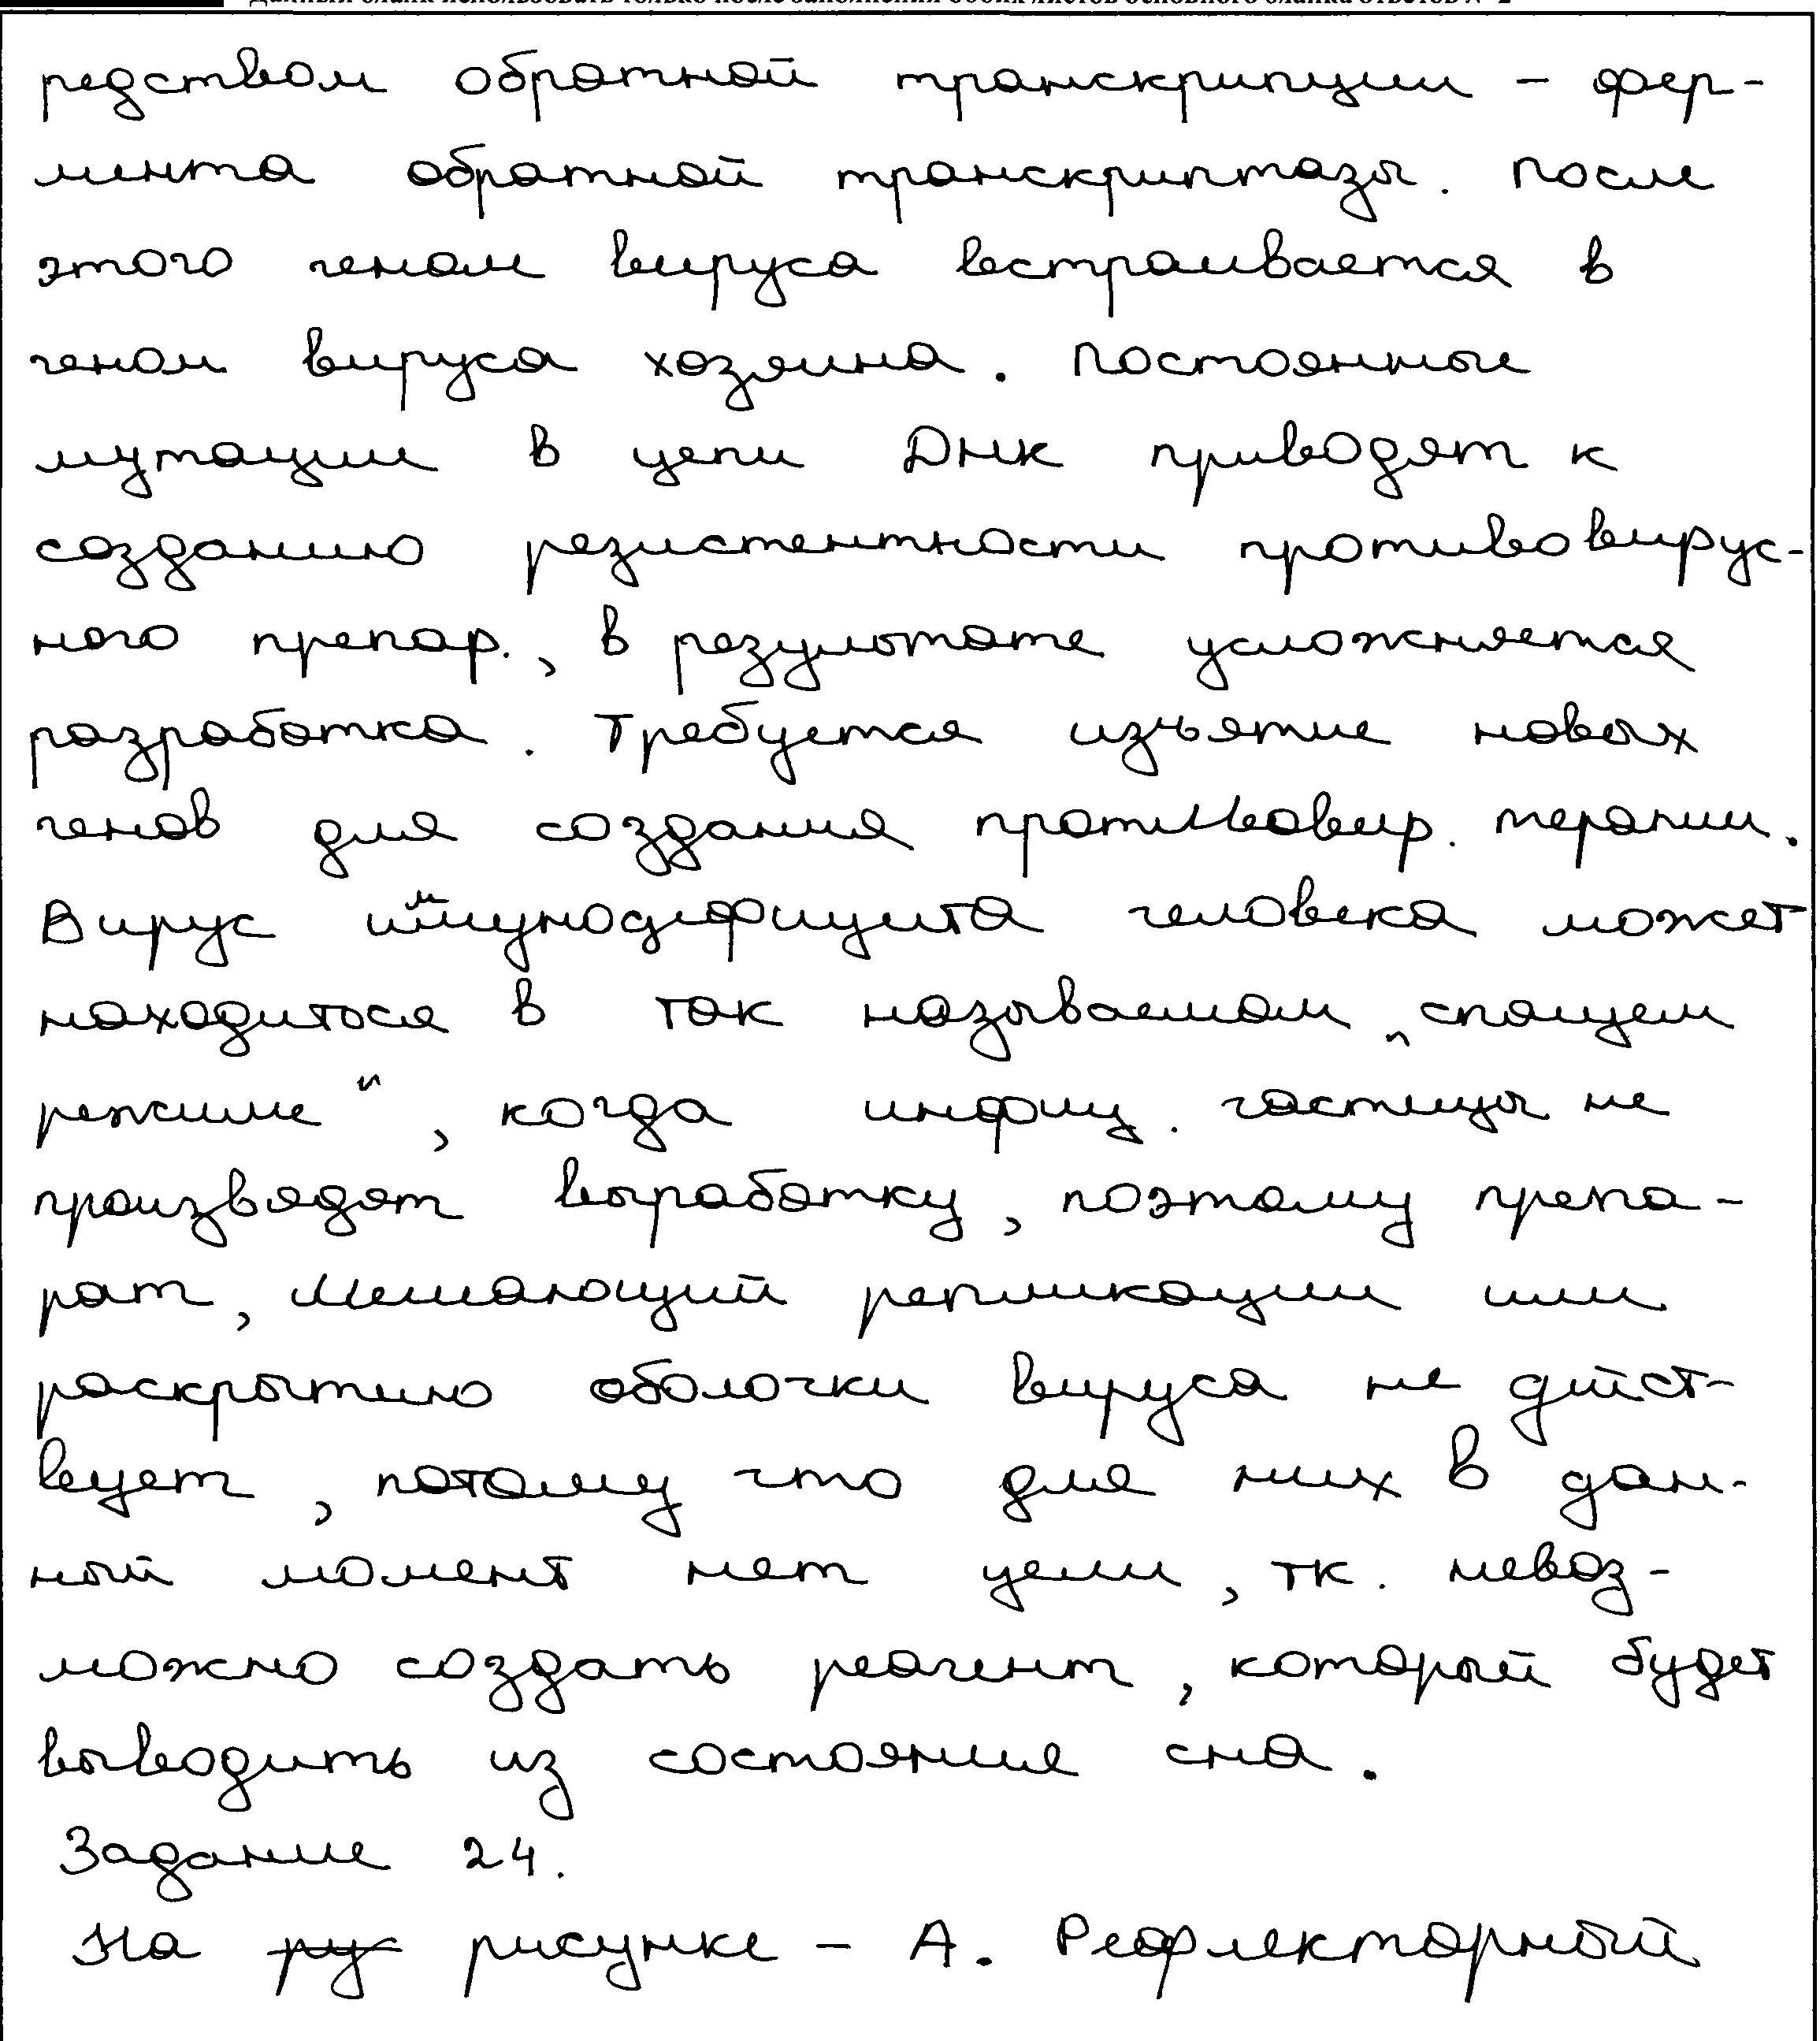 редством обратной транскрипции – фер-
мента обратной транскриптазы. После
этого геном вируса встраивается в
геном вируса хозяина. Постоянные
мутации в цепи ДНК приводят к
созданию резистентности противовирус-
ного препар., в результате усложняется
разработка. Требуется изъятие новых
генов для создания противовир. терапии.
Вирус иммунодефицита человека может
находиться в так называемом „спящем
режиме“, когда инфиц. частицы не
производят выработку, поэтому препа-
рат, мешающий репликации или
раскрытию оболочки вируса не дейст-
вует, потому что для них в дан-
ный момент нет цели, тк. невоз-
можно создать реагент, который будет
выводить из состояние сна.
Задание 24.
На ру рисунке – А. Рефлекторный